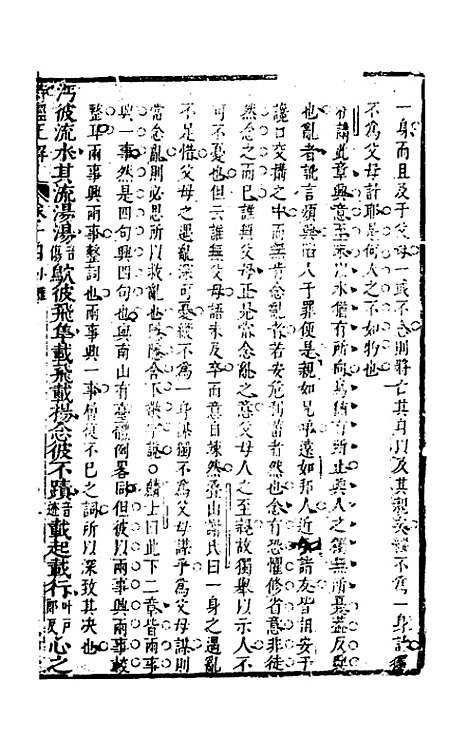 一身而且及于父母一或不念則將亡其身以及其親矣縱不為一身計獨
不為父母計耶是何人之不如物也
析講此章興意至末以水猶有所向鳥猶有所止興人之獨無所忌蓋反興
也亂者訛言煩興俗人于罪便是親如兄弟遠如邦人近諸友皆詛安于
讒口交搆之中而無肯念亂者若安危利菑者然也念有恐懼修省意非徒
然念之而已誰無父母正是當念亂之意父母人之至親故獨舉以示人不
可不憂也但云誰無父母語未及卒而意自竦然疊山謝氏曰一身之遇亂
不足惜父母之遇亂深可憂縱不為一身謀獨不為父母謀乎為父母謀則
當念亂則必思所以救亂也麟士曰此下二章皆兩事
興一事然是四句興四句也與南山有臺體例畧同但彼以兩事興兩事較
整耳兩事興兩事整詞也兩事興一事僧復不已之詞所以深致其决也
沔彼流水其流湯湯鴥彼飛隼載飛載揚念彼不蹟載起載行心之
詩經正解